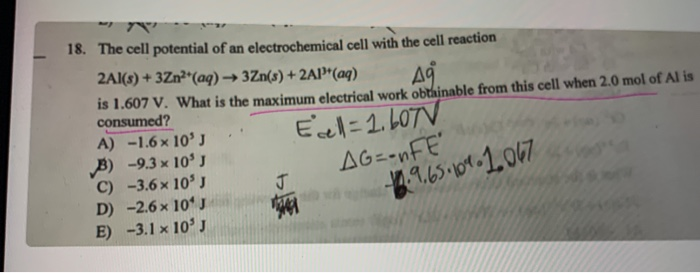 18. The cell potential of an electrochemical cell with the cell reaction
2Al(s) + 3Zn²⁺(aq) → 3Zn(s) + 2Al³⁺(aq)
Δg°
is 1.607 V. What is the maximum electrical work obtainable from this cell when 2.0 mol of Al is
consumed?
E°cell = 1.607V
A) −1.6 × 10⁵ J
B) −9.3 × 10⁵ J
ΔG = -nFE°
C) −3.6 × 10⁵ J
9.65·10⁴·1.067
J
D) −2.6 × 10⁴ J
E) −3.1 × 10⁵ J